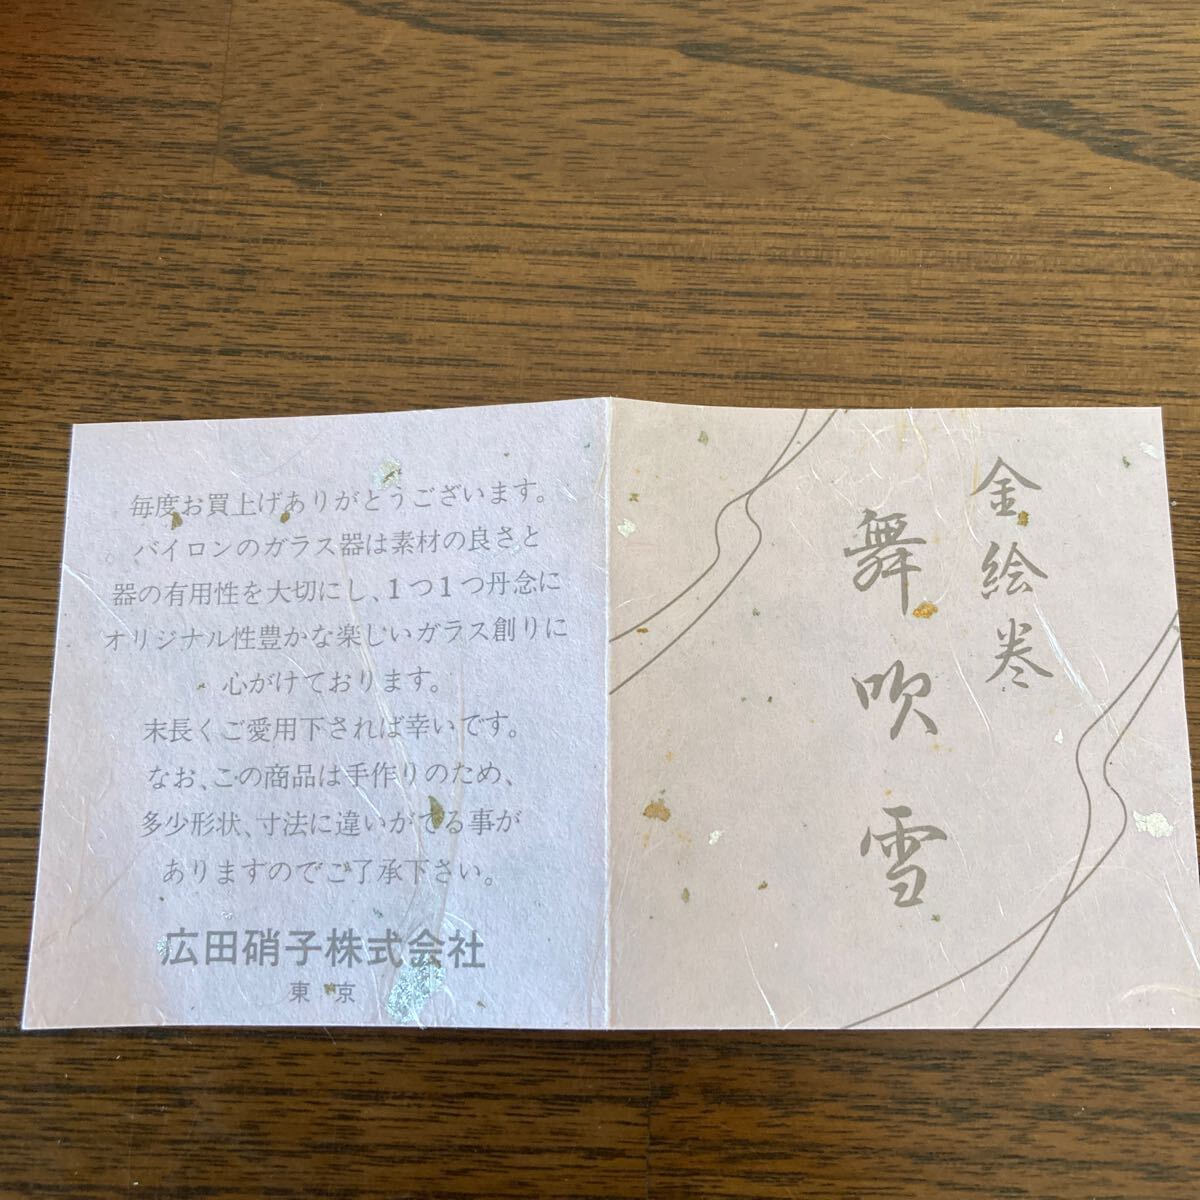 金絵巻
舞吹雪
毎度お買上げありがとうございます。
バイロンのガラス器は素材の良さと
器の有用性を大切にし、1つ1つ丹念に
オリジナル性豊かな楽しいガラス創りに
心がけております。
末長くご愛用下されば幸いです。
なお、この商品は手作りのため、
多少形状、寸法に違いがでる事が
ありますのでご了承下さい。
広田硝子株式会社
東京